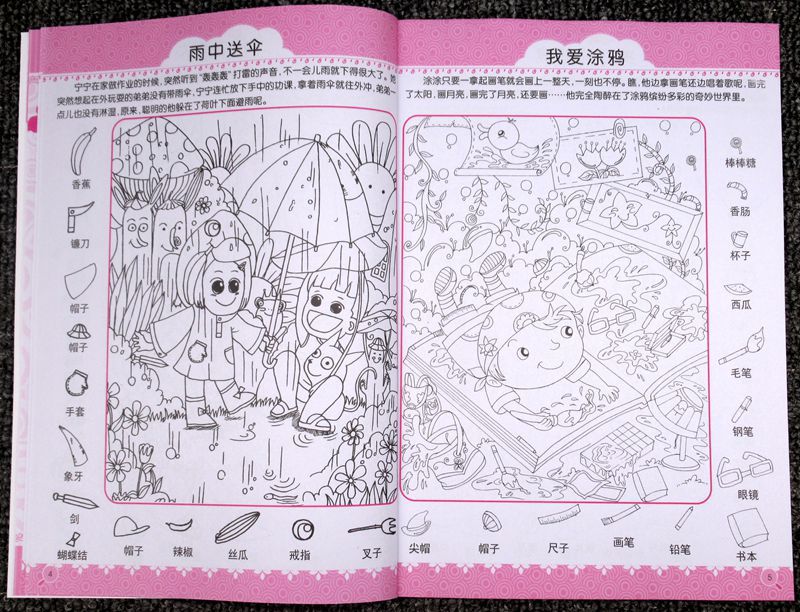 雨中送伞
宁宁在家做作业的时候，突然听到“轰轰轰”打雷的声音，不一会儿雨就下得很大了。
突然想起在外玩耍的弟弟没有带雨伞，宁宁连忙放下手中的功课，拿着雨伞就往外冲，弟弟一
点儿也没有淋湿，原来，聪明的他躲在了荷叶下面避雨呢。
香蕉
镰刀
帽子
帽子
手套
象牙
剑
蝴蝶结
帽子
辣椒
丝瓜
戒指
叉子
4
我爱涂鸦
涂涂只要一拿起画笔就会画上一整天，一刻也不停。瞧，他边拿画笔还边唱着歌呢，画完
了太阳，画月亮，画完了月亮，还要画……他完全陶醉在了涂鸦缤纷多彩的奇妙世界里。
棒棒糖
香肠
杯子
西瓜
毛笔
钢笔
眼镜
书本
尖帽
帽子
尺子
画笔
铅笔
5